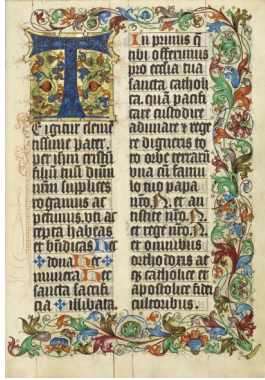 T
E igitur cleme
tissime pater.
per ihm cristū
filiū tuū dñm
nrm supplices
rogamus ac
petimus. vti ac
cepta habeas
et bñdicas Hec
dona Hec
munera Hec
sancta sacrifi
cia illibata.
In primis q̄
tibi offerimus
pro ecclia tua
sancta catholi
ca. quā pacifi
care custodire
adunare ⁊ rege
re digneris to
to orbe terrarū
vna cū famu
lo tuo papa
nr̄o. N. et an
tistite nr̄o. N.
et rege nr̄o. N.
et omnibus
orthodoxis at
q̄ catholice et
apostolice fidei
cultoribus.